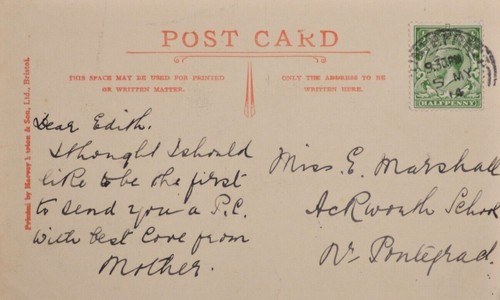 POST CARD
THIS SPACE MAY BE USED FOR PRINTED
OR WRITTEN MATTER.
ONLY THE ADDRESS TO BE
WRITTEN HERE.
Printed by Harvey Barton & Son, Ltd., Bristol.
Dear Edith.
I thought I should
like to be the first
to send you a P.C.
with best Love from
Mother.
Miss. E. Marshall
Ackworth School
Nr Pontegrad.
9.30PM
5 MY
14
HALFPENNY